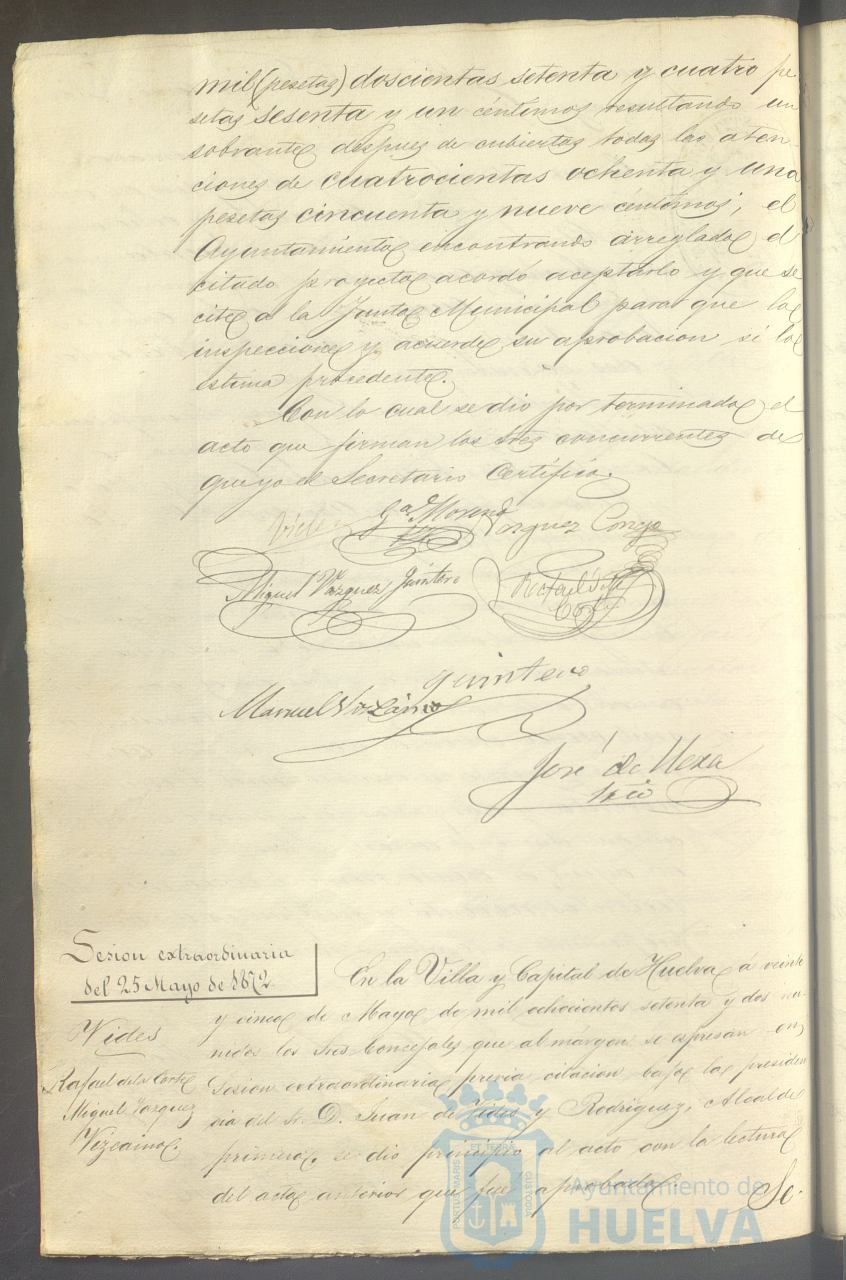 mil (pesetas) doscientas setenta y cuatro pe
setas sesenta y un céntimos resultando un
sobrante despues de cubiertas todas las aten
ciones de cuatrocientas ochenta y una
pesetas cincuenta y nueve céntimos; el
Ayuntamiento encontrando arreglado el
citado proyecto acordó aceptarlo y que se
cite a la Junta Municipal para que lo
inspeccione y acuerde su aprobacion si lo
estima procedente.
Con lo cual se dio por terminado el
acto que firman los Sres concurrentes de
que yo el Secretario Certifico.
Vides Ga. Moreno Vazquez Conejo
Miguel Vazquez Quintero Rafael
Quintero
Manuel Vizcaino
José de
Srio
Sesion extraordinaria
del 25 Mayo de 1872.
Vides
Rafael de la Corte
Miguel Vazquez
Vizcaino.
En la Villa y Capital de Huelva á veinte
y cinco de Mayo de mil ochocientos setenta y dos reu-
nidos los Sres Concejales que al márgen se espresan en
Sesion extraordinaria previa citacion bajo la presiden
cia del Sr. D. Juan de Vides y Rodriguez, Alcalde
primero, se dio principio al acto con la lectura
del acta anterior que fue aprobada. Se
PORTUS MARIS ET TERRAE CUSTODIA
Ayuntamiento de
HUELVA